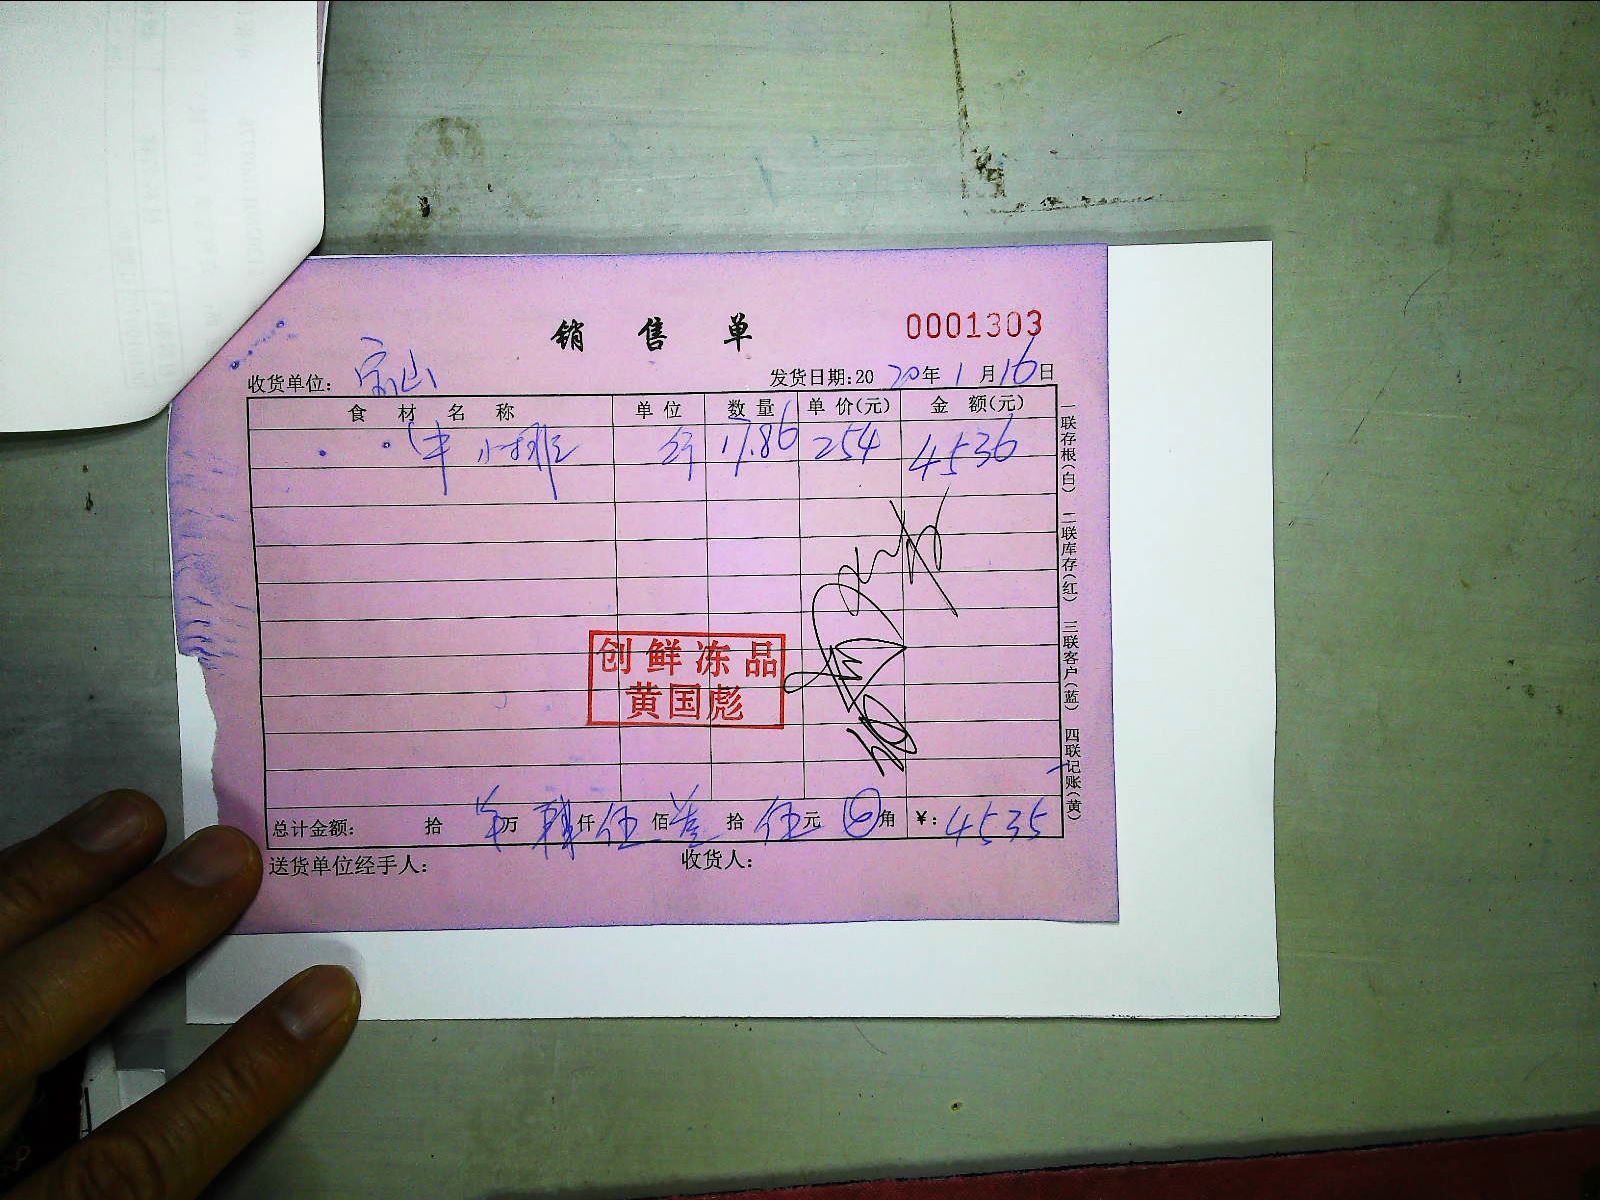 销售单
0001303
收货单位: 宝山
发货日期:2020年1月16日
食材名称 单位 数量 单价(元) 金额(元)
牛小排 斤 17.86 254 4536
创鲜冻品
黄国彪
总计金额: 拾 万 肆仟伍佰叁拾伍元 角 ¥:4535
送货单位经手人: 收货人:
一联存根(白) 二联库存(红) 三联客户(蓝) 四联记账(黄)